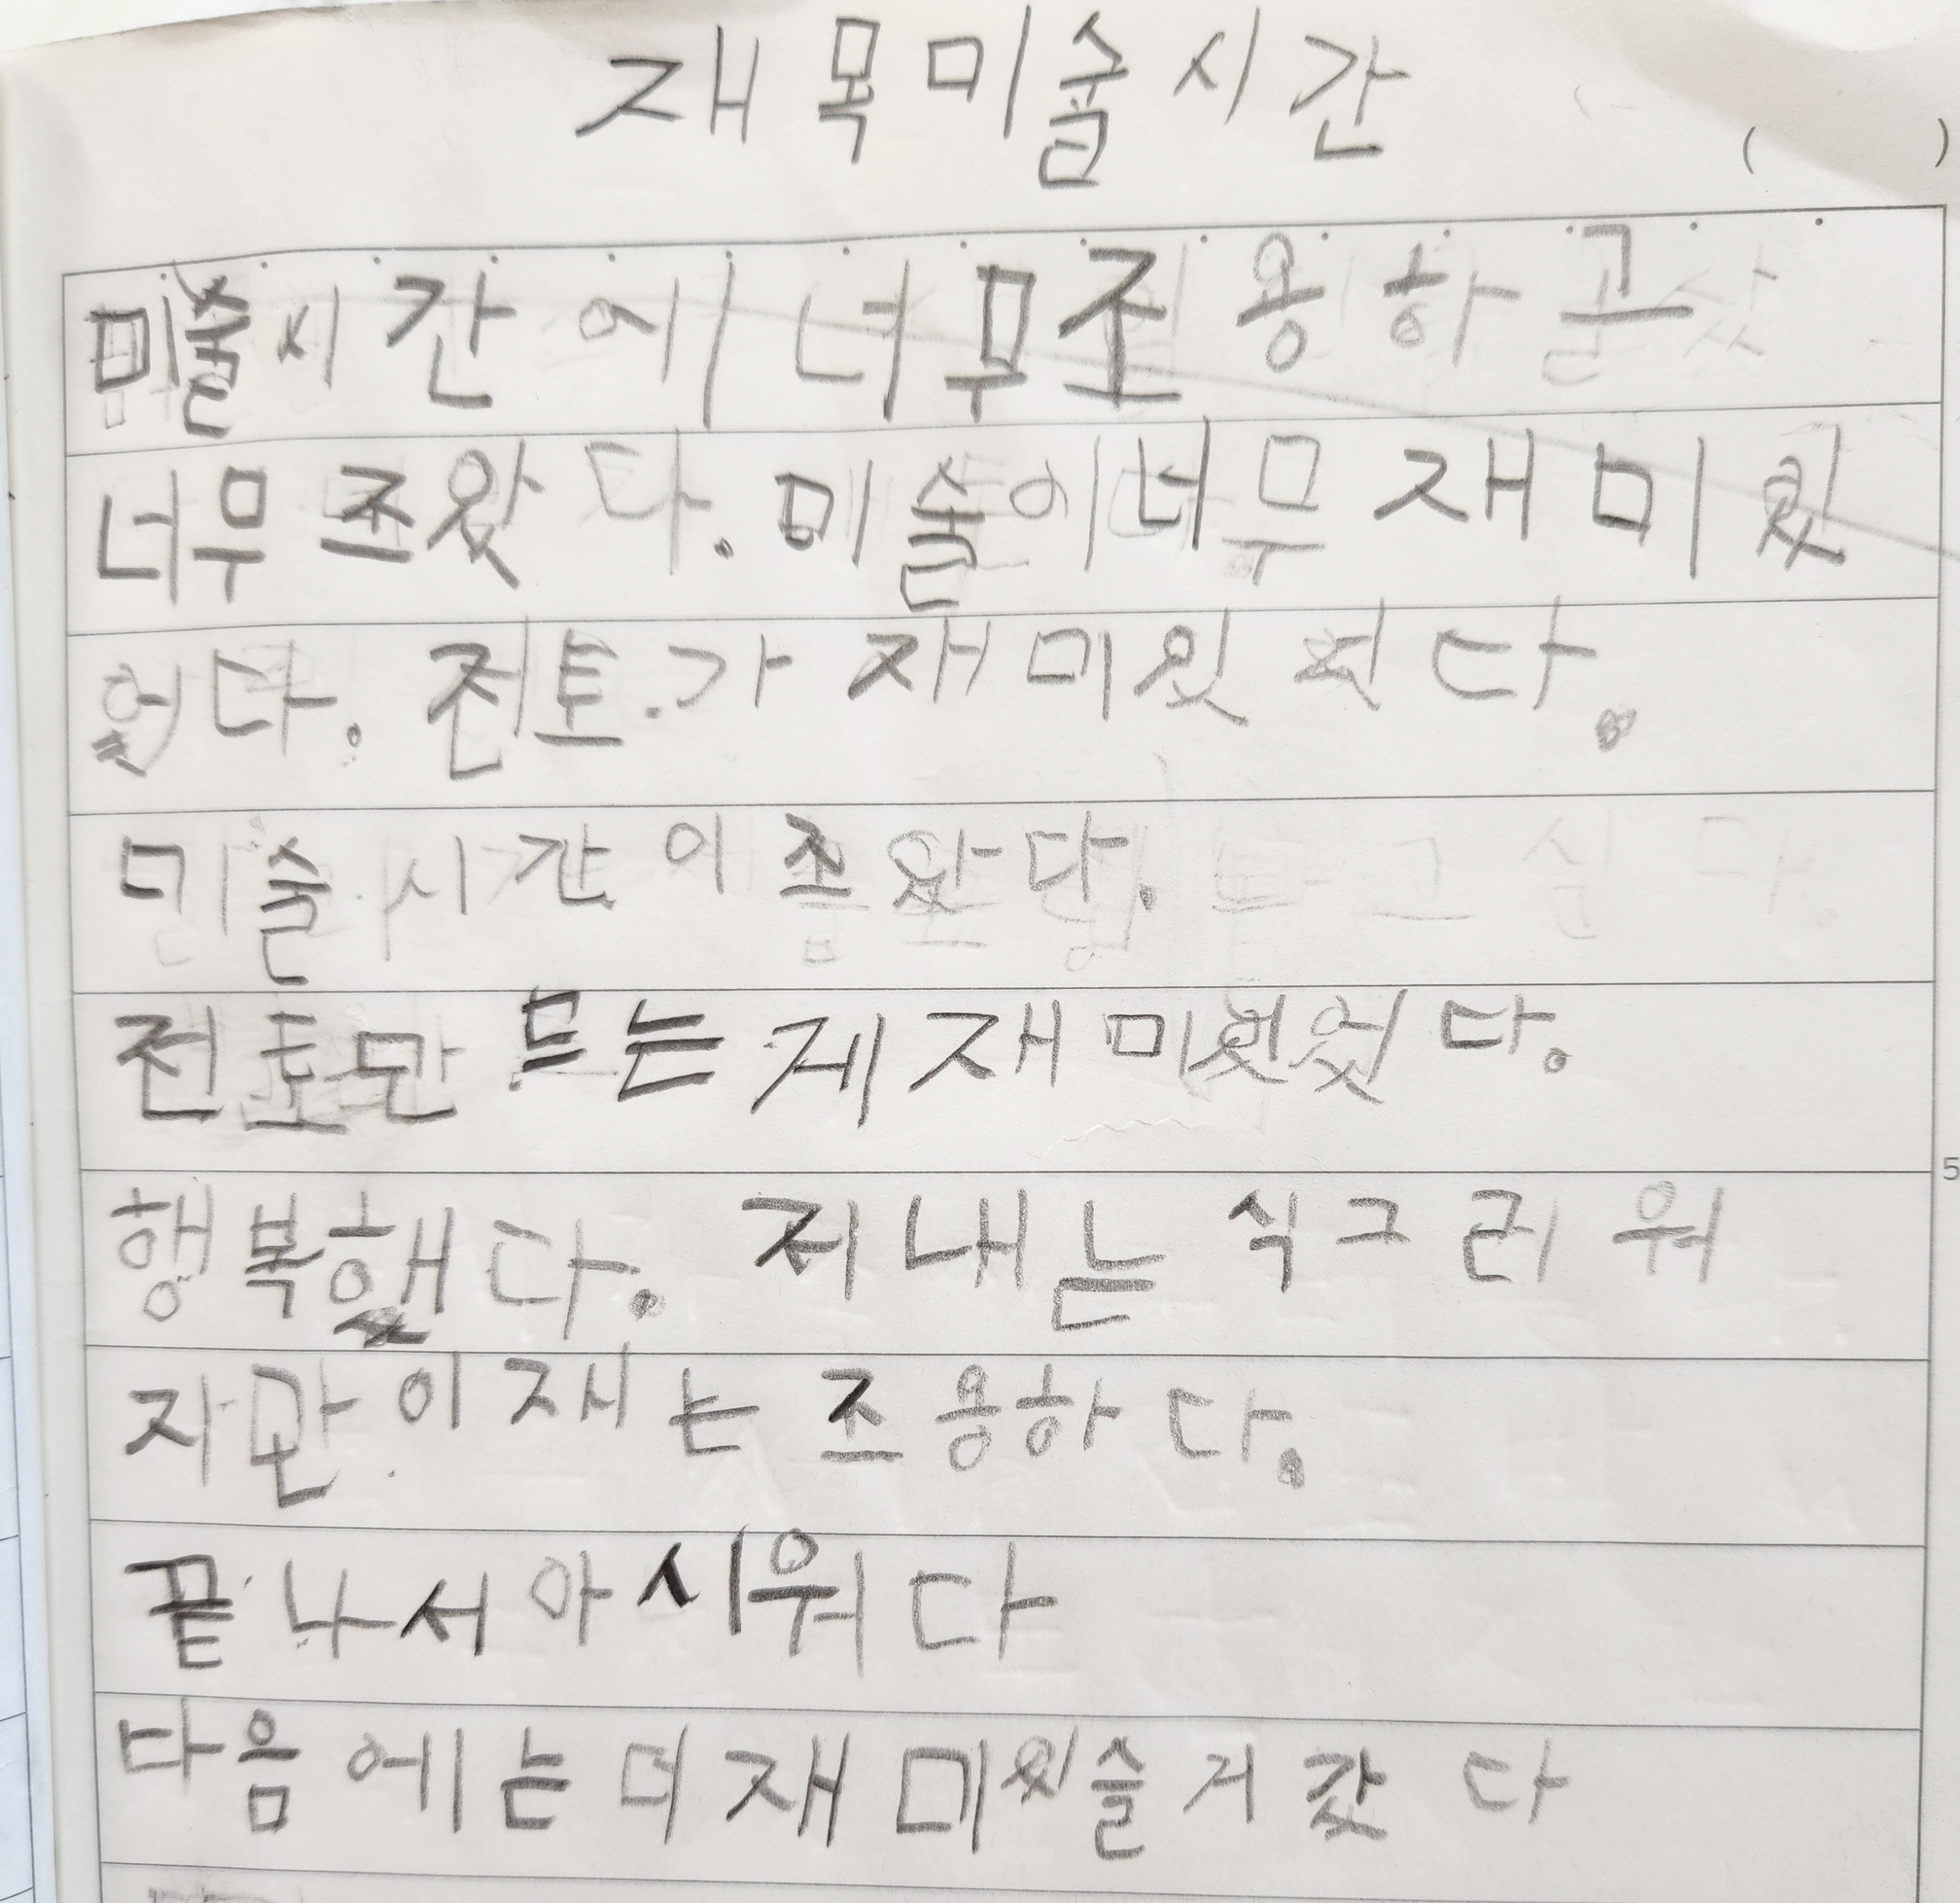 재목미술시간
( )
미술시간 에 너무조용하고
너무 조왔다. 미술이너무 재미있
었다. 전토가 재미있었다.
미술시간이조왔다.
전토만드는게재미있었다.
행복했다. 저내는 식그러워
자만 이재는 조용하다.
끝나서아시워다
다음에는더재미있슬거갔다
5